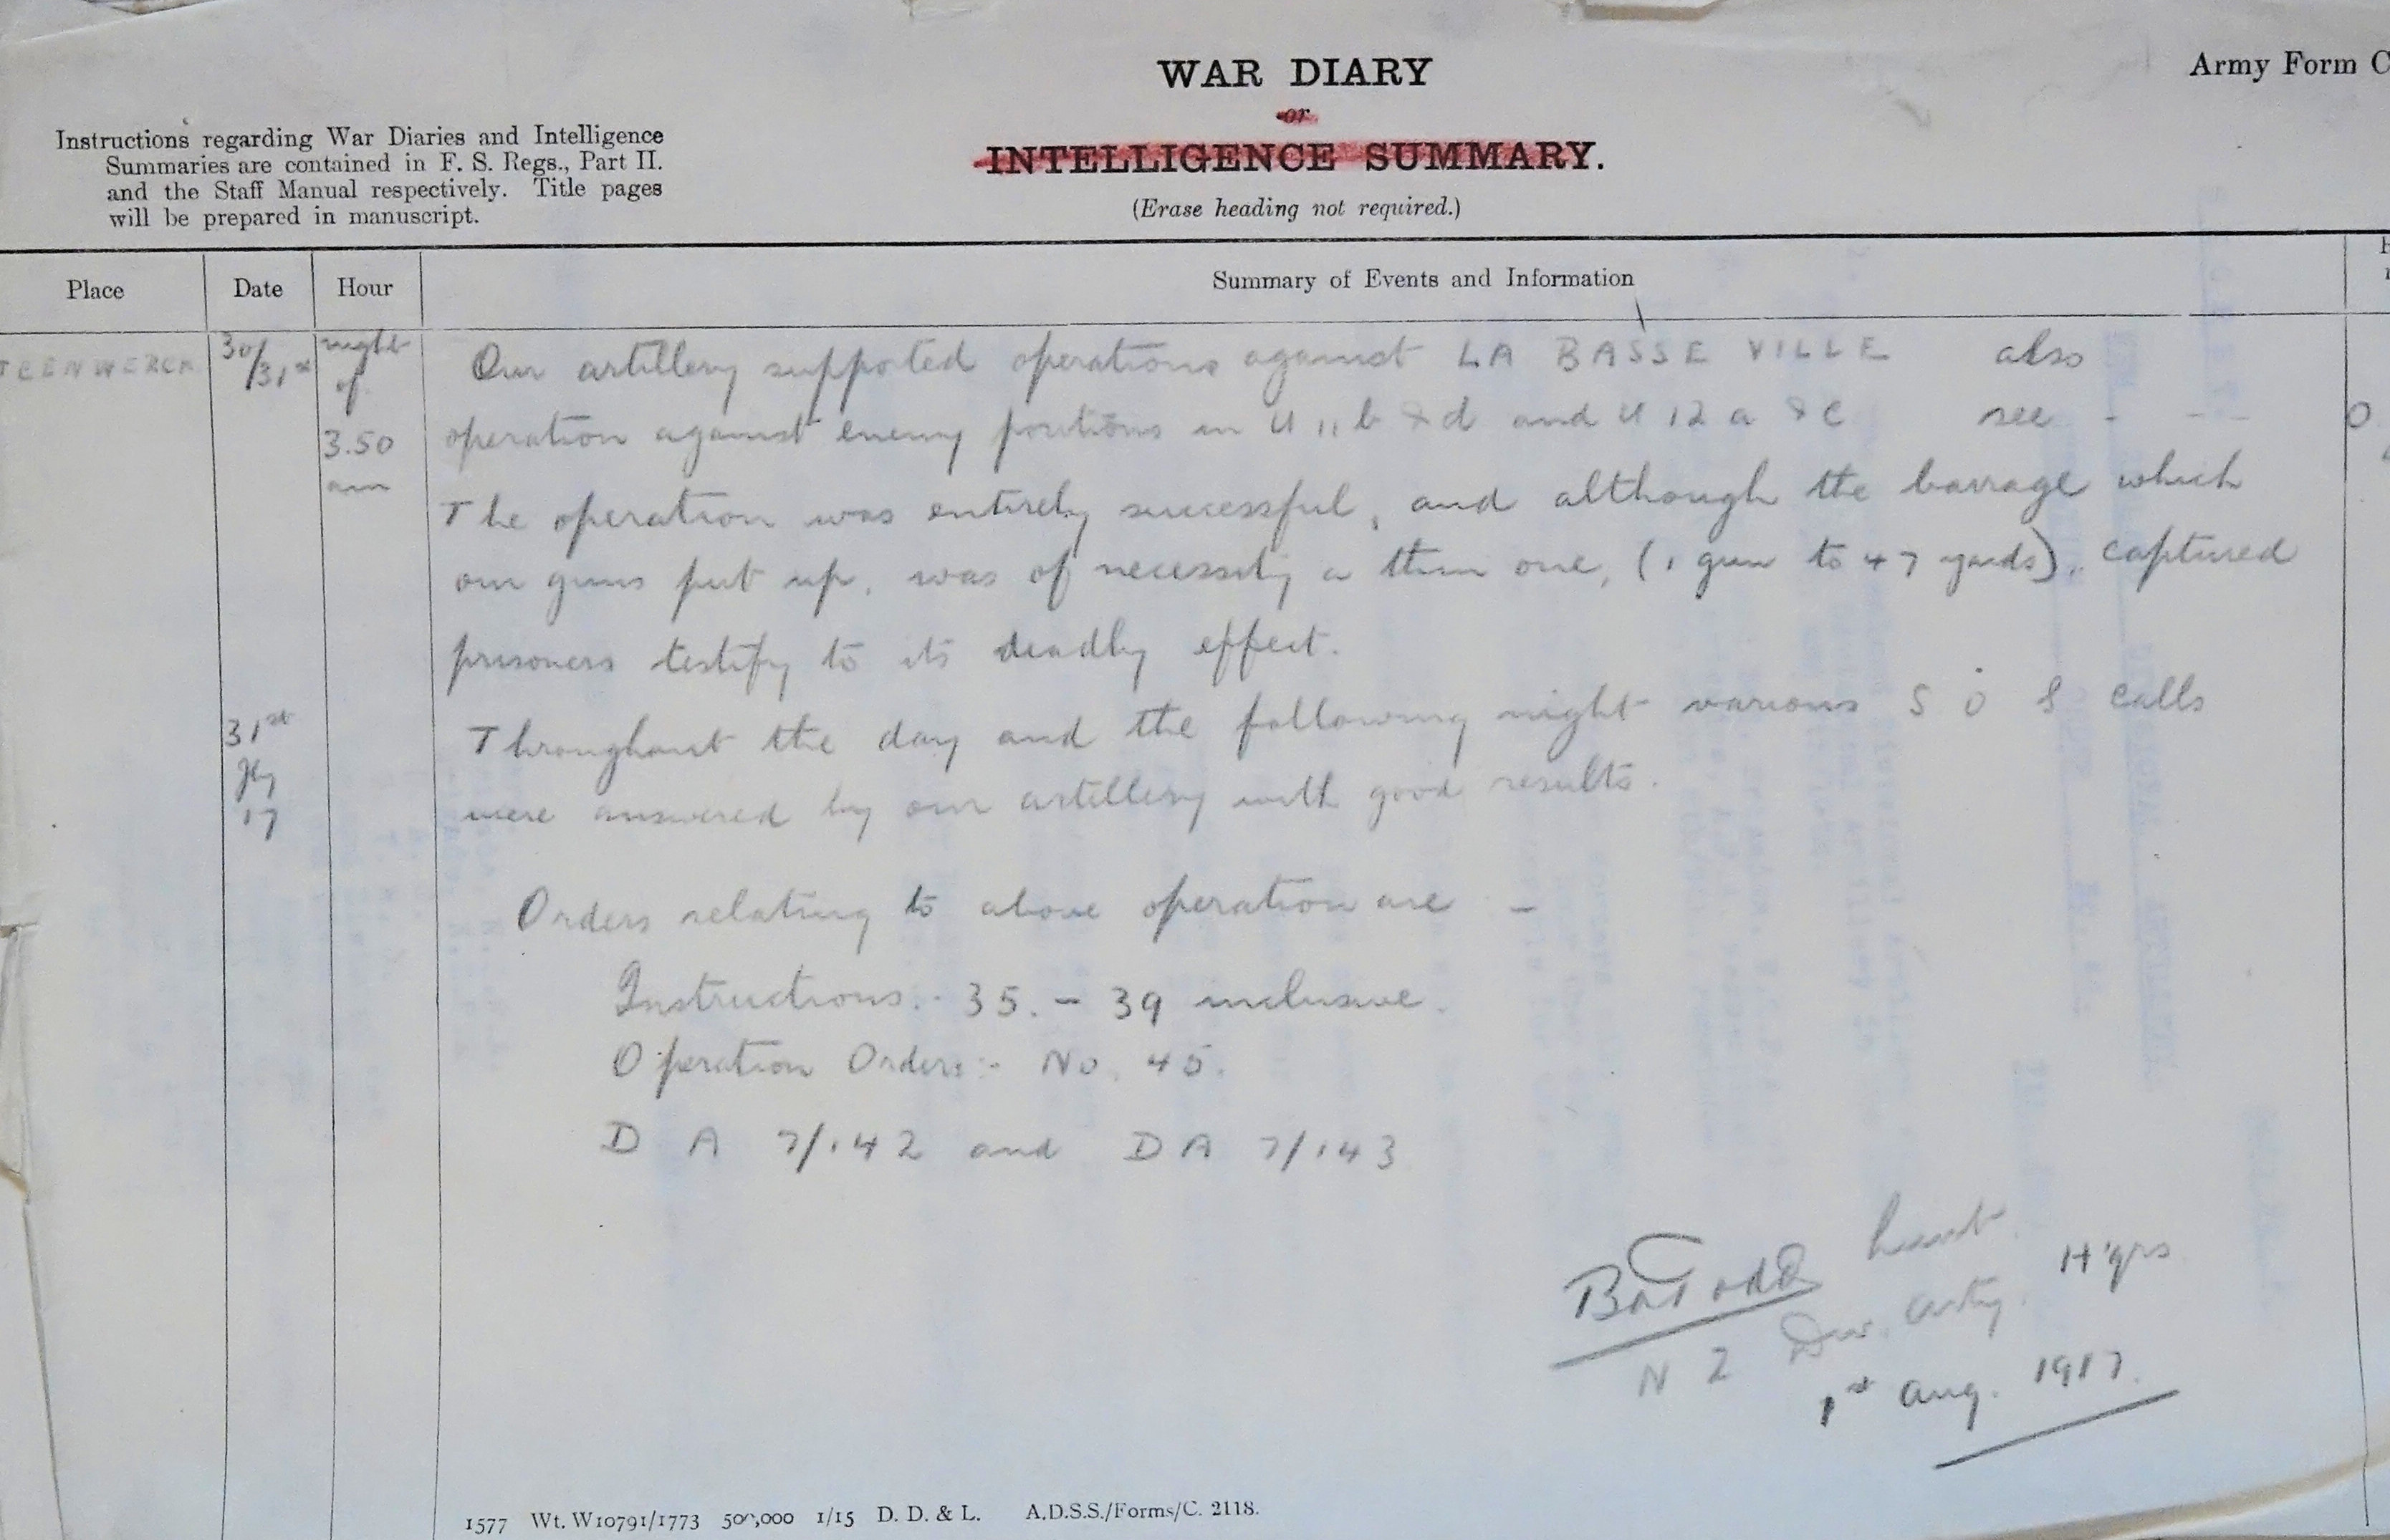 WAR DIARY
or
INTELLIGENCE SUMMARY.
(Erase heading not required.)
Army Form C
Instructions regarding War Diaries and Intelligence
Summaries are contained in F. S. Regs., Part II.
and the Staff Manual respectively. Title pages
will be prepared in manuscript.
Place Date Hour Summary of Events and Information
TEENWERCK 30/31st night of 3.50 am
Our artillery supported operations against LA BASSE VILLE also
operation against enemy positions in U 11 b & d and U 12 a & c see - - -
The operation was entirely successful, and although the barrage which
our guns put up, was of necessity a thin one, (1 gun to 47 yards), captured
prisoners testify to its deadly effect.
31st Jly 17
Throughout the day and the following night various S O S calls
were answered by our artillery with good results.
Orders relating to above operation are -
Instructions:- 35. - 39 inclusive.
Operation Orders:- No. 45.
D A 7/142 and D A 7/143
Todd Lieut.
N Z Div. Arty. H'qrs
1st Aug. 1917.
1577 Wt. W10791/1773 500,000 1/15 D. D. & L. A.D.S.S./Forms/C. 2118.